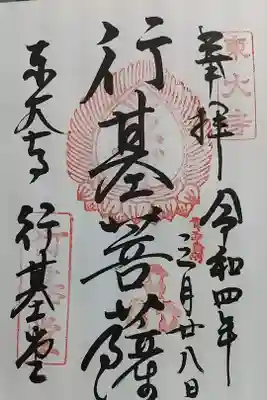 東大寺
奉拝
令和四年
三月廿八日
行基菩薩
東大寺
行基堂